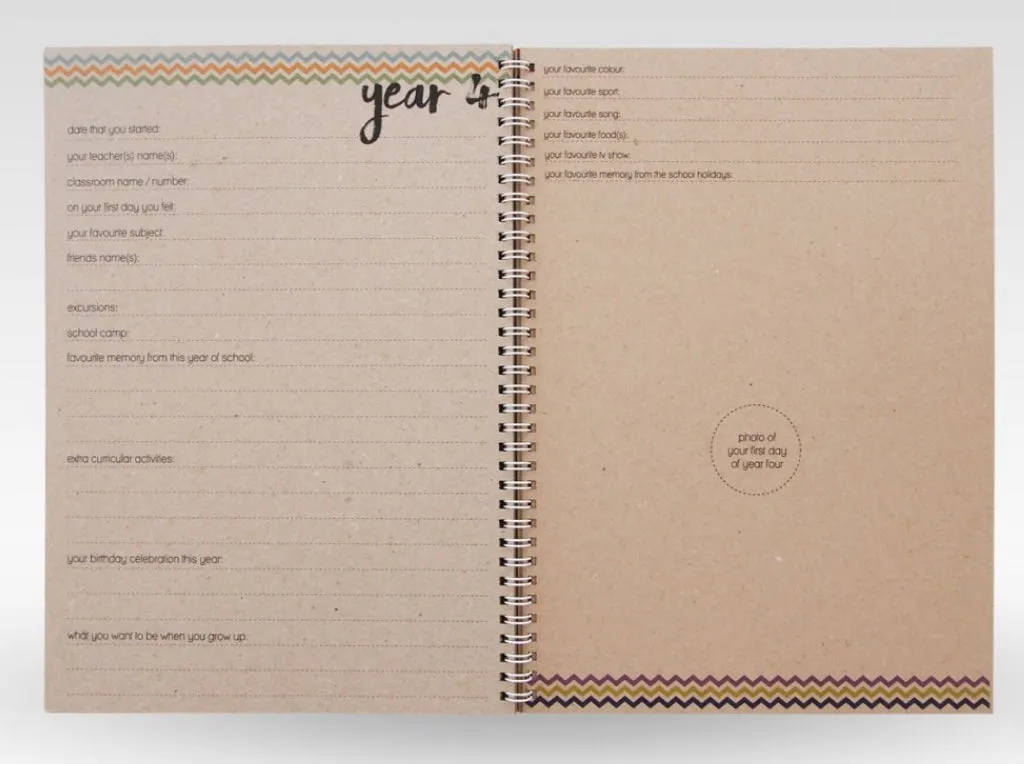 year 4
date that you started:
your teacher(s) name(s):
classroom name / number:
on your first day you felt:
your favourite subject:
friends name(s):
excursions:
school camp:
favourite memory from this year of school:
extra curricular activities:
your birthday celebration this year:
what you want to be when you grow up:
your favourite colour:
your favourite sport:
your favourite song:
your favourite food(s):
your favourite tv show:
your favourite memory from the school holidays:
photo of
your first day
of year four